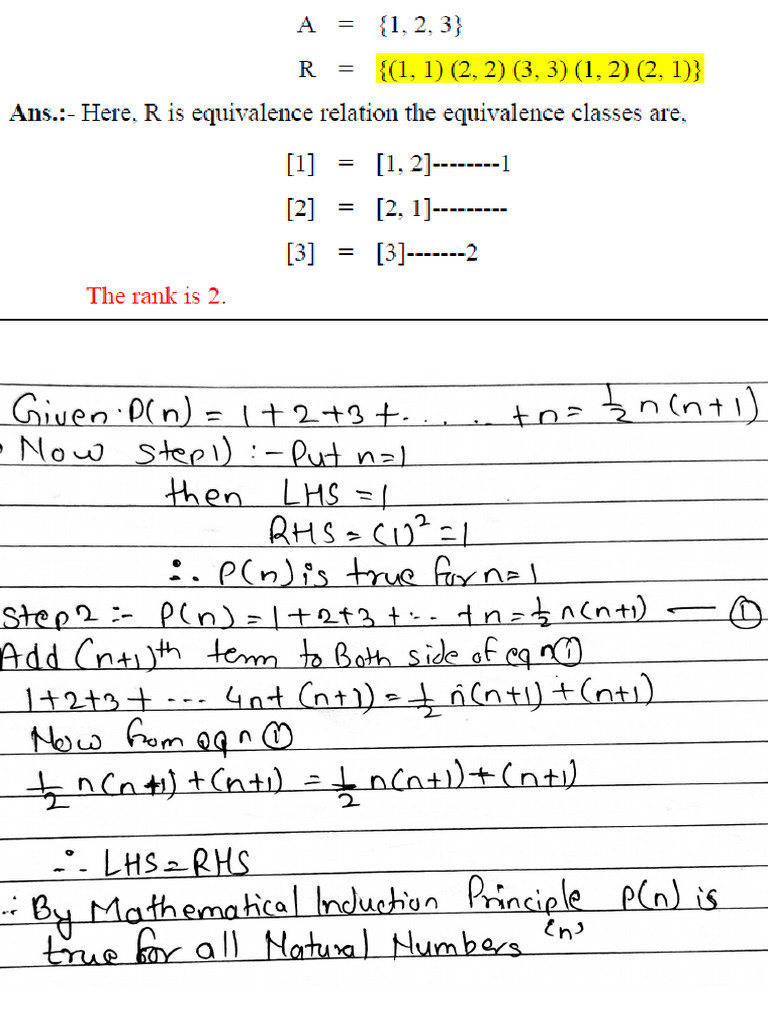 A = {1, 2, 3}
R = {(1, 1) (2, 2) (3, 3) (1, 2) (2, 1)}
Ans.:- Here, R is equivalence relation the equivalence classes are,
[1] = [1, 2]--------1
[2] = [2, 1]---------
[3] = [3]-------2
The rank is 2.
Given. P(n) = 1+2+3+. . . . . . +n = 1/2 n(n+1)
Now step1) :- Put n=1
then LHS = 1
RHS = (1)² = 1
∴ P(n) is true for n=1
Step 2 :- P(n) = 1+2+3+... +n = 1/2 n(n+1) — ①
Add (n+1)th term to Both side of eq n①
1+2+3+ --- 4n+ (n+1) = 1/2 n(n+1) + (n+1)
Now from eq n ①
1/2 n(n+1) + (n+1) = 1/2 n(n+1) + (n+1)
∴ LHS = RHS
∴ By Mathematical Induction Principle P(n) is
true for all Natural Numbers 'n'